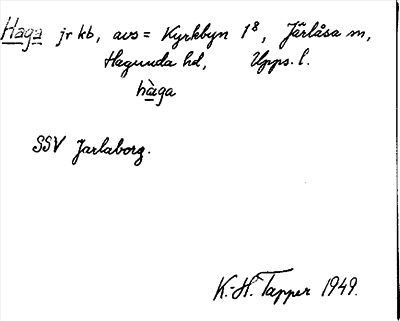 Haga jr kb, avs = Kyrkbyn 1⁸, Järlåsa sn,
Hagunda hd, Upps. l.
hàga
SSV Jarlaborg.
K.-H. Tapper 1949.